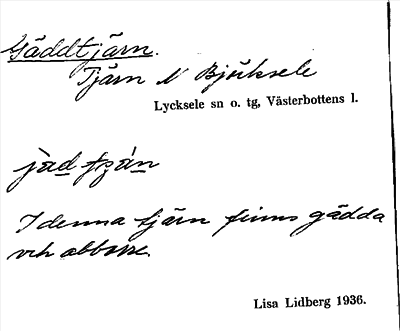 Gäddtjärn.
Tjärn N Bjuksele
Lycksele sn o. tg, Västerbottens l.
I denna tjärn finns gädda
och abborre.
Lisa Lidberg 1936.